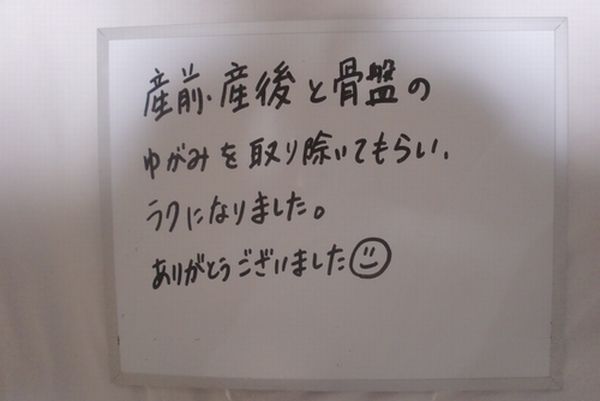 産前、産後と骨盤の
ゆがみを取り除いてもらい、
ラクになりました。
ありがとうございました